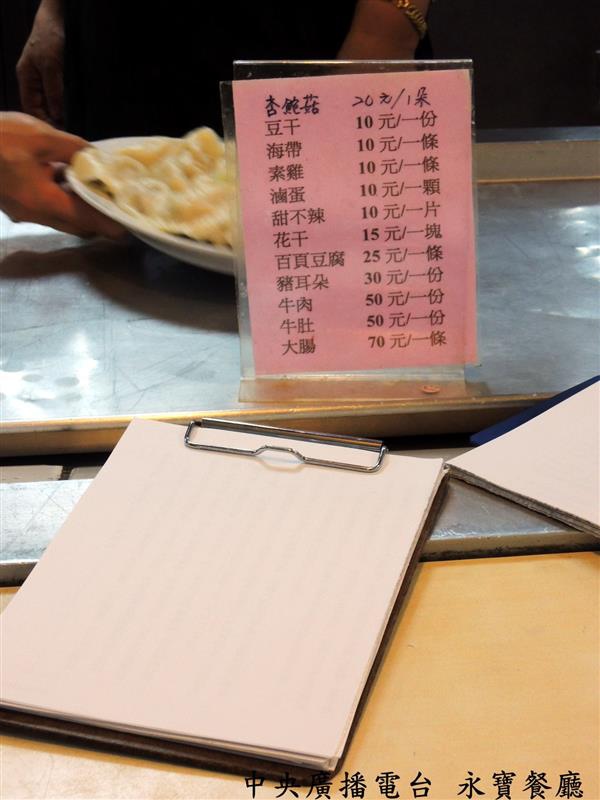 杏鮑菇 20元/1朵
豆干 10 元/一份
海帶 10 元/一條
素雞 10 元/一條
滷蛋 10 元/一顆
甜不辣 10 元/一片
花干 15 元/一塊
百頁豆腐 25 元/一條
豬耳朵 30 元/一份
牛肉 50 元/一份
牛肚 50 元/一份
大腸 70 元/一條
中央廣播電台 永寶餐廳